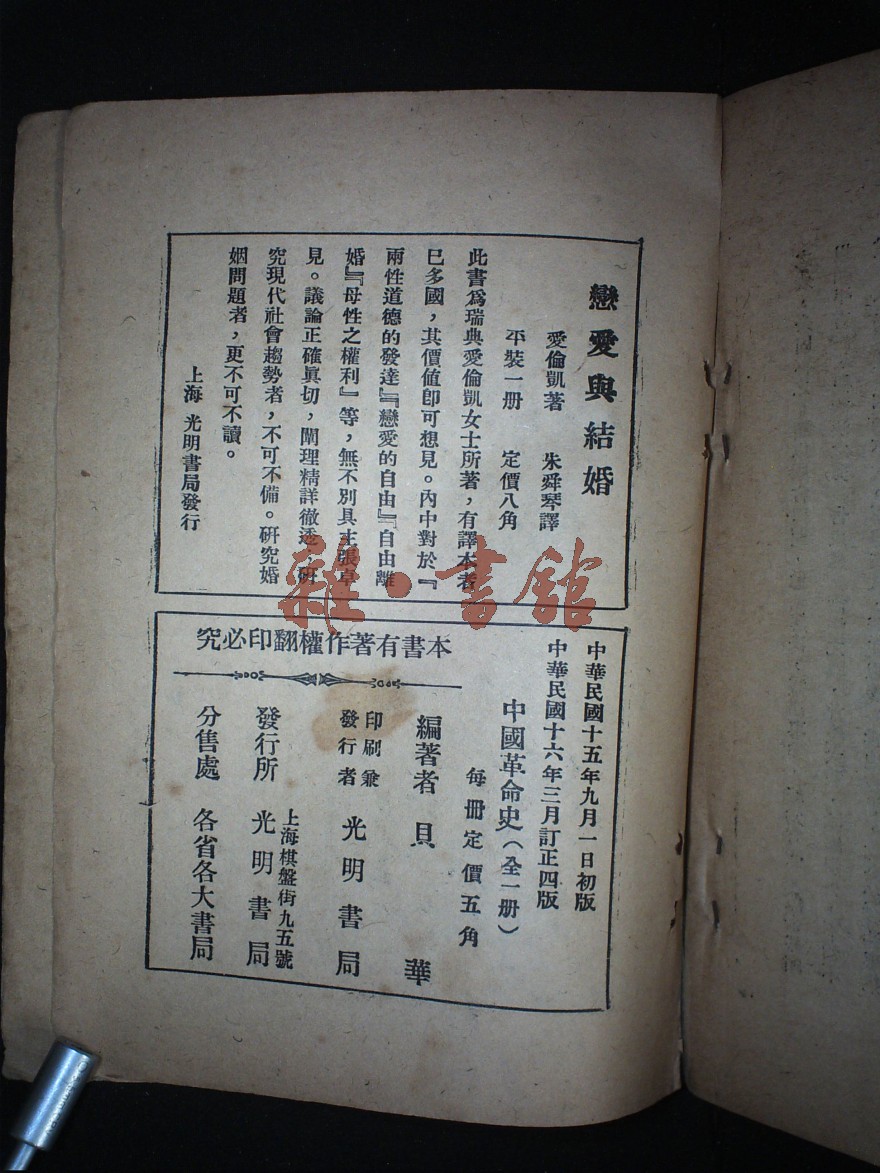 戀愛與結婚
愛倫凱著 朱舜琴譯
平裝一册 定價八角
此書爲瑞典愛倫凱女士所著，有譯本者
已多國，其價值卽可想見。內中對於『
兩性道德的發達』『戀愛的自由』『自由離
婚』『母性之權利』等，無不別具主張卓
見。議論正確眞切，闡理精詳徹透，研
究現代社會趨勢者，不可不備。研究婚
姻問題者，更不可不讀。
上海 光明書局發行
雜·書館
中華民國十五年九月一日初版
中華民國十六年三月訂正四版
中國革命史（全一册）
每册定價五角
本書有著作權翻印必究
編著者 貝華
印刷兼
發行者 光明書局
上海棋盤街九五號
發行所 光明書局
分售處 各省各大書局